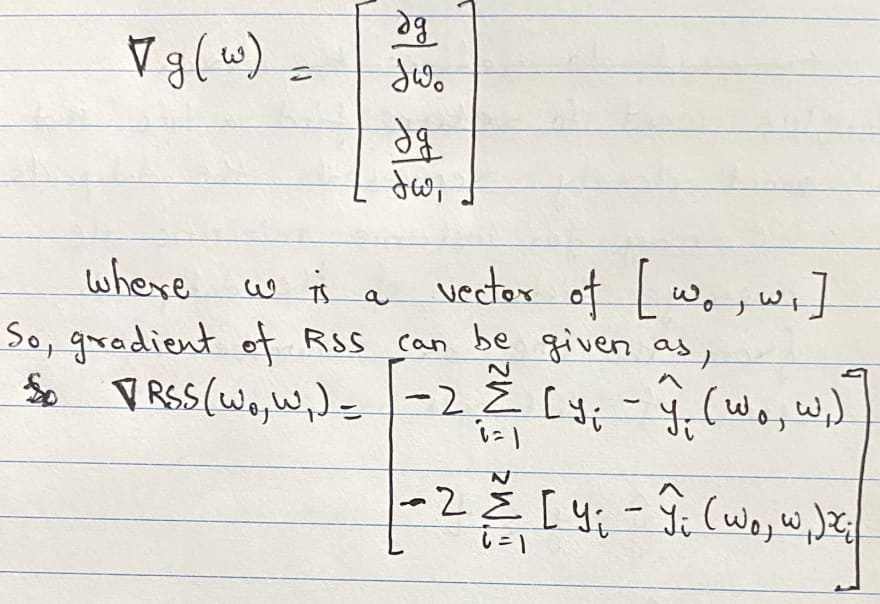 ∇g(w) = [ ∂g/∂w₀
∂g/∂w₁ ]
where w is a vector of [w₀, w₁]
So, gradient of RSS can be given as,
∇RSS(w₀,w₁) = [ -2 Σᵢ₌₁ᴺ [yᵢ - ŷᵢ(w₀, w₁)
-2 Σᵢ₌₁ᴺ [yᵢ - ŷᵢ(w₀, w₁)xᵢ ]